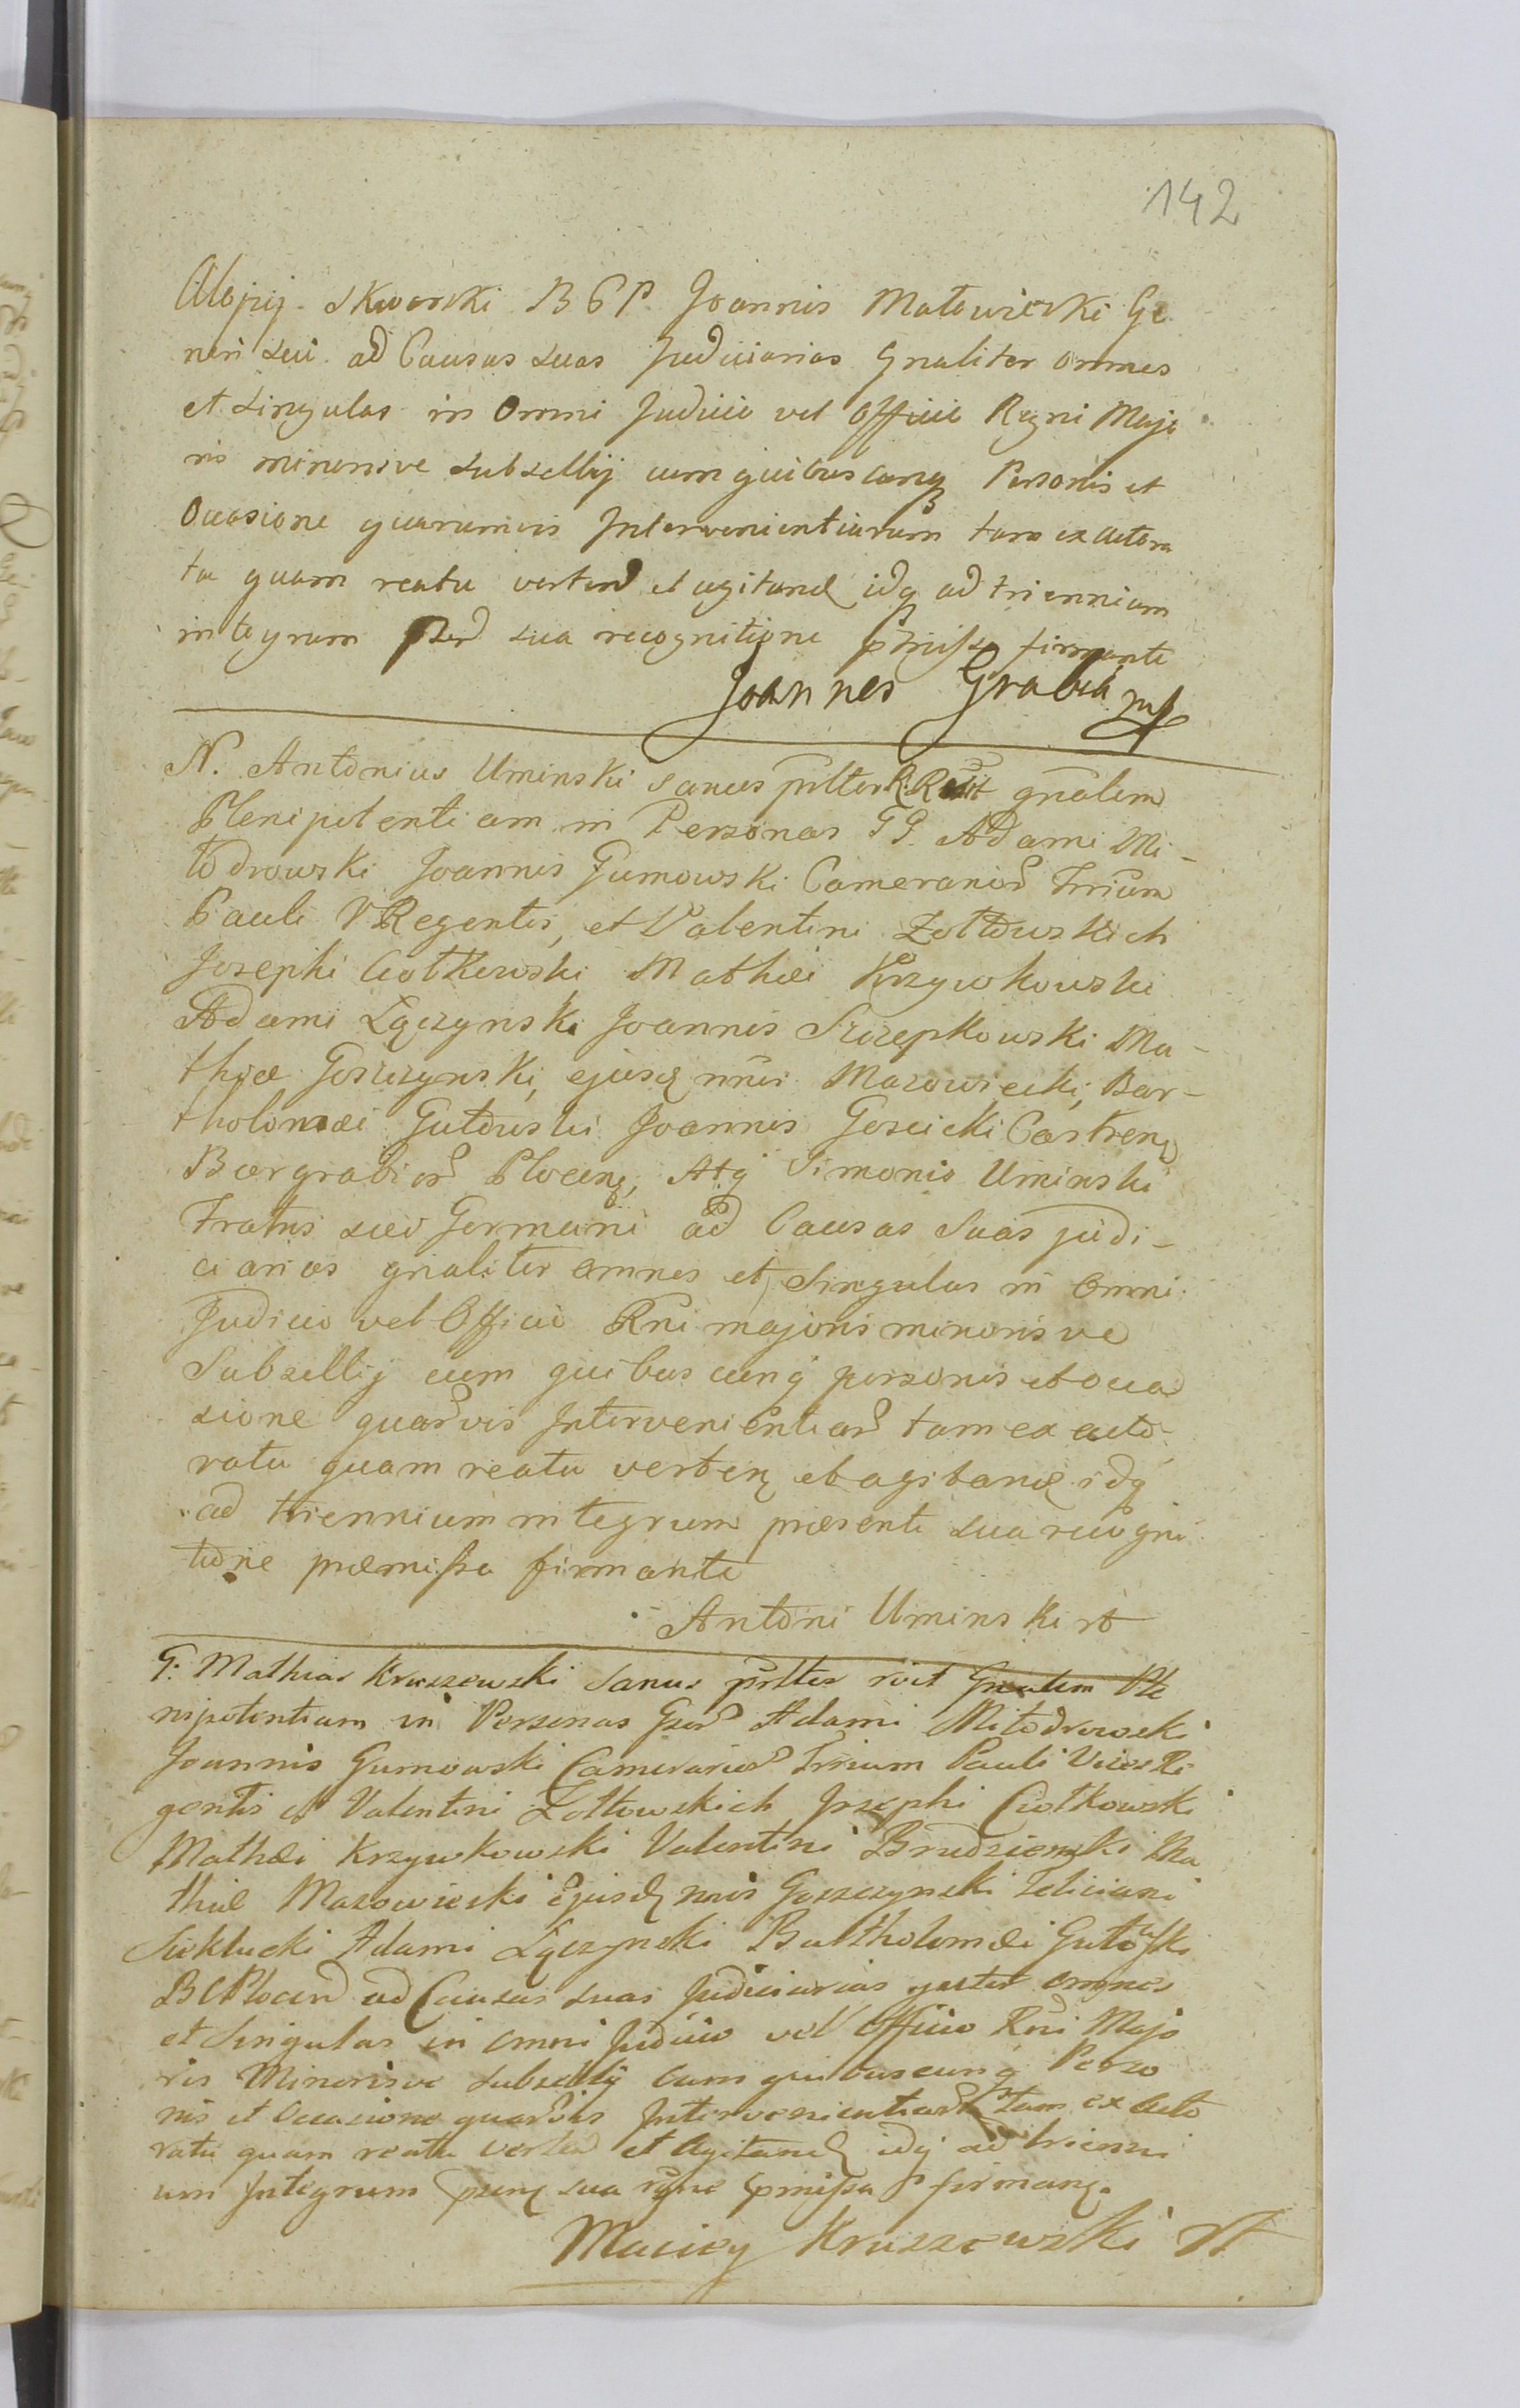 142
Aloysij Skworski B C P Joannis Małowieski Ge
neri sui ad Causas suas Judiciarias Gnaliter omnes
et singulas in Omni Judicio vel Officio Regni Majo
ris minorisve subsellij cum quibuscunq Personis et
Occasione quarumvis Intervenientiarum tam ex actora
tu quam reatu vertend et agitand idq ad triennium
integrum sua recognitione firmante
Joannes Grabia mp
N. Antonius Uminski sanus pntter gnalem
Plenipotentiam in Personas GG. Adami Mi-
łodrowski Joannis Gumowski Camerarior Trrium
Pauli VRegentis, et Valentini Zołtowskich
Josephi Ciołkowski Mathæi Krzywkowski
Adami Łączynski Joannis Szczepkowski Ma-
thiæ Goszczynski, ejusd nnis Mazowiecki, Bar-
tholomæi Gutowski Joannis Goscicki Castren
Burgrabior Plocen, Atq Simonis Uminski
Fratris sui Germani ad Causas Suas judi-
ciarias gnaliter omnes et Singulas in Omni
Judicio vel Officio Rni majoris minorisve
Subsellij cum quibuscunq personis et occa
sione quarvis Intervenientiar tam ex acto-
ratu quam reatu verten et agitand idq
ad triennium integrum præsenti sua recogni
tione præmissa firmante
Antoni Uminski
G: Mathias Kruszewski Sanus pntter rcit Gnalem Ple
nipotentiam in Personas Gsor Adami Miłodrowski
Joannis Gumowski Camerarior Trrium Pauli Vices Re
gentis et Valentini Zołtowskich Josephi Ciołkowski
Mathæi Krzywkowski Valentini Brudzienski Ma
thiæ Mazowiecki Ejusd nnis Goszczynski Feliciani
Siekłucki Adami Łączynski Bartholomæi Gutowski
B C Plocen ad Causas suas Judiciarias gnliter omnes
et Singulas in omni Judicio vel Officio Rni Majo
ris Minorisve subsellij cum quibuscunq Perso
nis et Occasione quarvis Intervenientiar tam ex Acto
ratu quam reatu vertend et Agitand idq ad trienni
um Integrum psen sua rgne pmissa firman.
Maciey Kruszewski